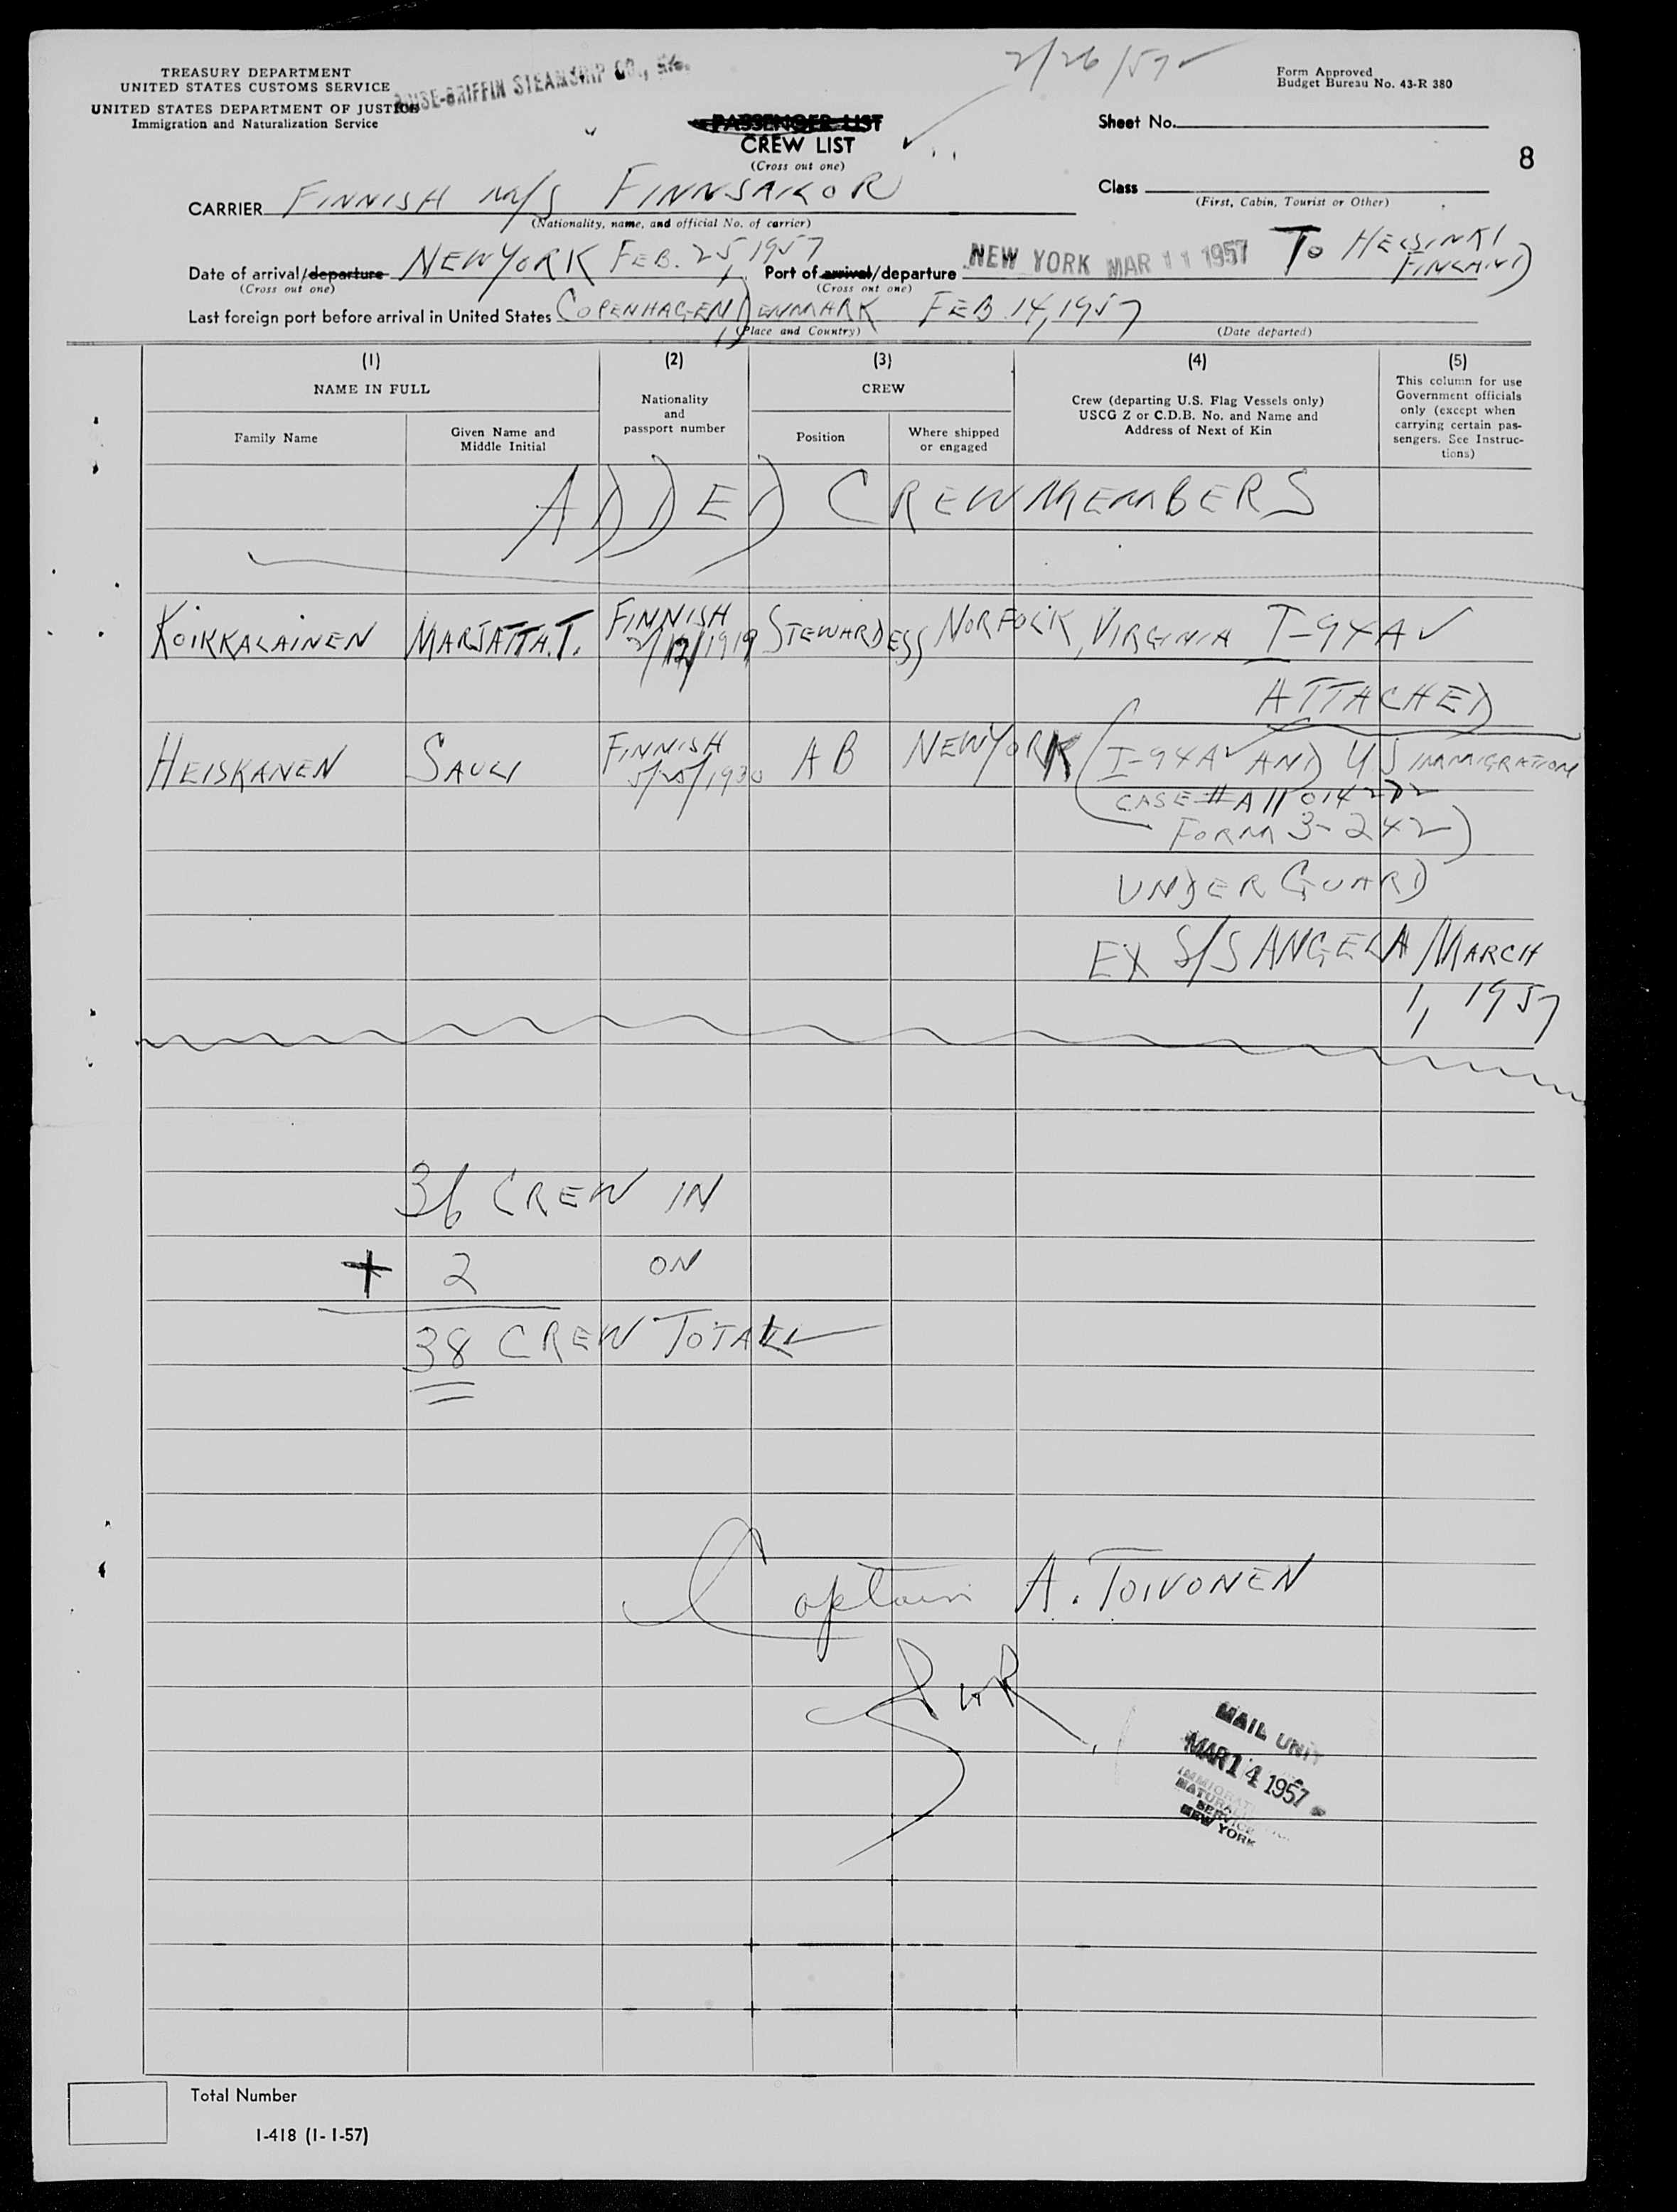 TREASURY DEPARTMENT
UNITED STATES CUSTOMS SERVICE
UNITED STATES DEPARTMENT OF JUSTICE
Immigration and Naturalization Service
-GRIFFIN STEAMSHIP CO.,
2/26/57
Form Approved
Budget Bureau No. 43-R 380
PASSENGER LIST
CREW LIST
(Cross out one)
Sheet No.
8
Class
(First, Cabin, Tourist or Other)
CARRIER FINNISH M/S FINNSAILOR
(Nationality, name, and official No. of carrier)
Date of arrival/departure NEW YORK FEB. 25, 1957 Port of arrival/departure NEW YORK MAR 11 1957 TO HELSINKI FINLAND
(Cross out one) (Cross out one)
Last foreign port before arrival in United States COPENHAGEN, DENMARK FEB 14, 1957
(Place and Country) (Date departed)
(1) (2) (3) (4) (5)
NAME IN FULL
Family Name
Given Name and Middle Initial
Nationality and passport number
CREW
Position
Where shipped or engaged
Crew (departing U.S. Flag Vessels only)
USCG Z or C.D.B. No. and Name and
Address of Next of Kin
This column for use
Government officials
only (except when
carrying certain pas-
sengers. See Instruc-
tions)
ADDED CREWMEMBERS
KOIKKALAINEN MARJATTA.T. FINNISH 2/12/1919 STEWARDESS NORFOLK, VIRGINIA I-94A
ATTACHED
HEISKANEN SAULI FINNISH 5/25/1930 AB NEW YORK (I-94A AND US IMMIGRATION
CASE # A11 014272
FORM 3-242)
UNDER GUARD
EX S/S ANGELA MARCH
1, 1957
36 CREW IN
+ 2 ON
38 CREW TOTAL
Captain A. TOIVONEN
MAIL UNIT
MAR 14 1957
IMMIGRATI
NATURAL
SERVICE
NEW YORK
Total Number
I-418 (1-1-57)